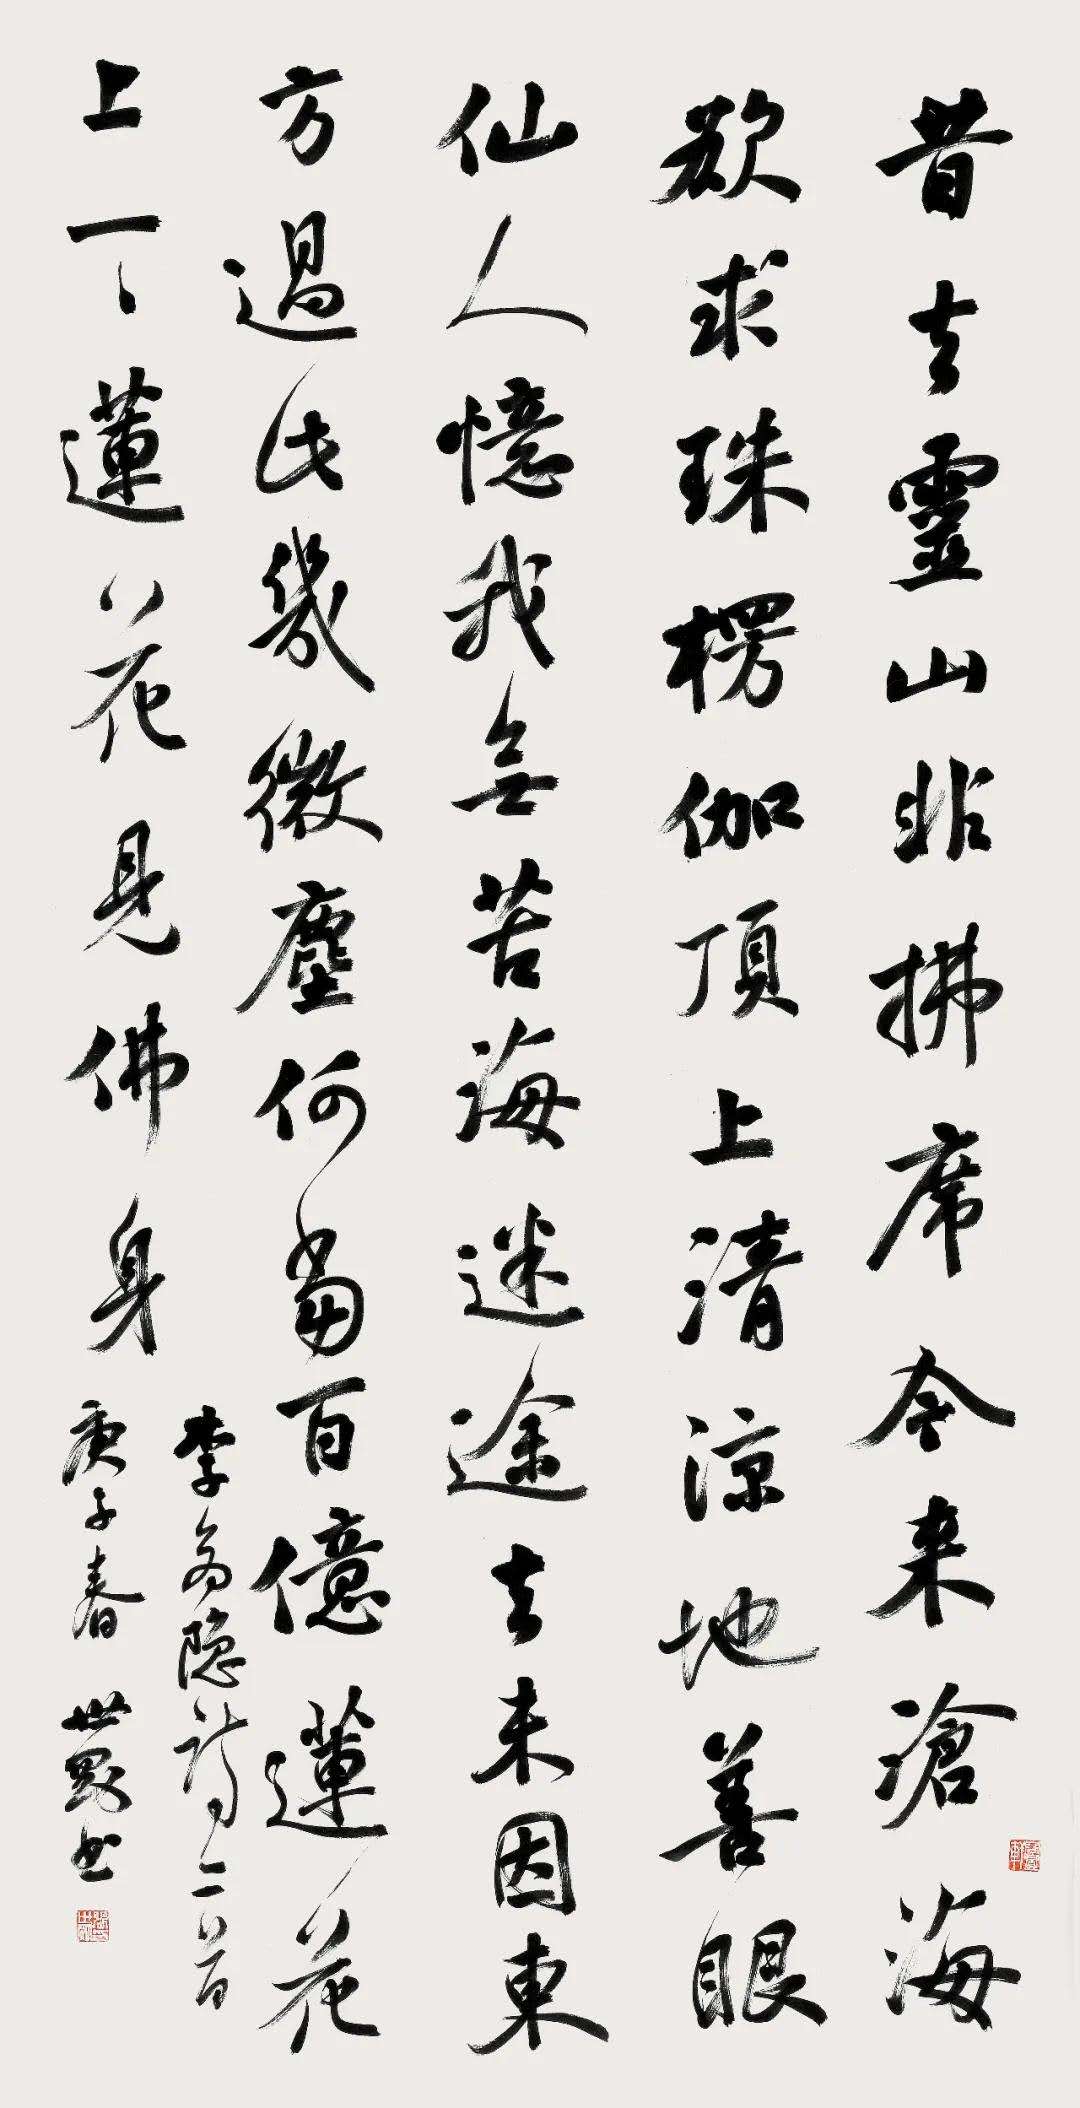 昔去靈山非拂席今来滄海
欲求珠楞伽頂上清涼地善眼
仙人憶我無苦海迷途去未因東
方過此幾微塵何當百億蓮花
上一一蓮花見佛身
李商隐詩二首
庚子春世书